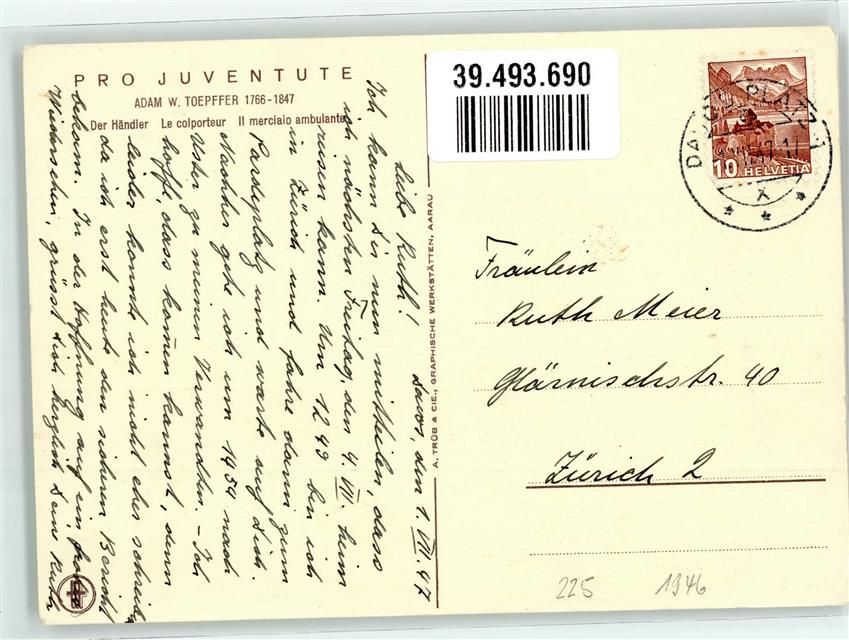 PRO JUVENTUTE
ADAM W. TOEPFFER 1766-1847
Der Händler Le colporteur Il merciaio ambulante
39.493.690
10 HELVETIA
DAVOS PLATZ 1
A. TRÜB & CIE., GRAPHISCHE WERKSTÄTTEN, AARAU
Davos, den 1. VII. 47
Liebe Ruth!
Ich kann Dir nun mitteilen, dass
ich nächsten Freitag, den 4. VII. heim
reisen kann. Um 12 49 bin ich
in Zürich und fahre dann zum
Paradeplatz und warte auf Dich.
Nachher gehe ich um 14 54 nach
Uster zu meinen Verwandten. - Ich
hoffe, dass kommen kannst, denn
leider konnte ich nicht eher schreiben
da ich erst heute den sichern Bericht
bekam. In der Hoffnung auf ein frohes
Wiedersehen, grüsst Dich herzlich Deine Ruth
Fräulein
Ruth Meier
Glärnischstr. 40
Zürich 2
225 1946